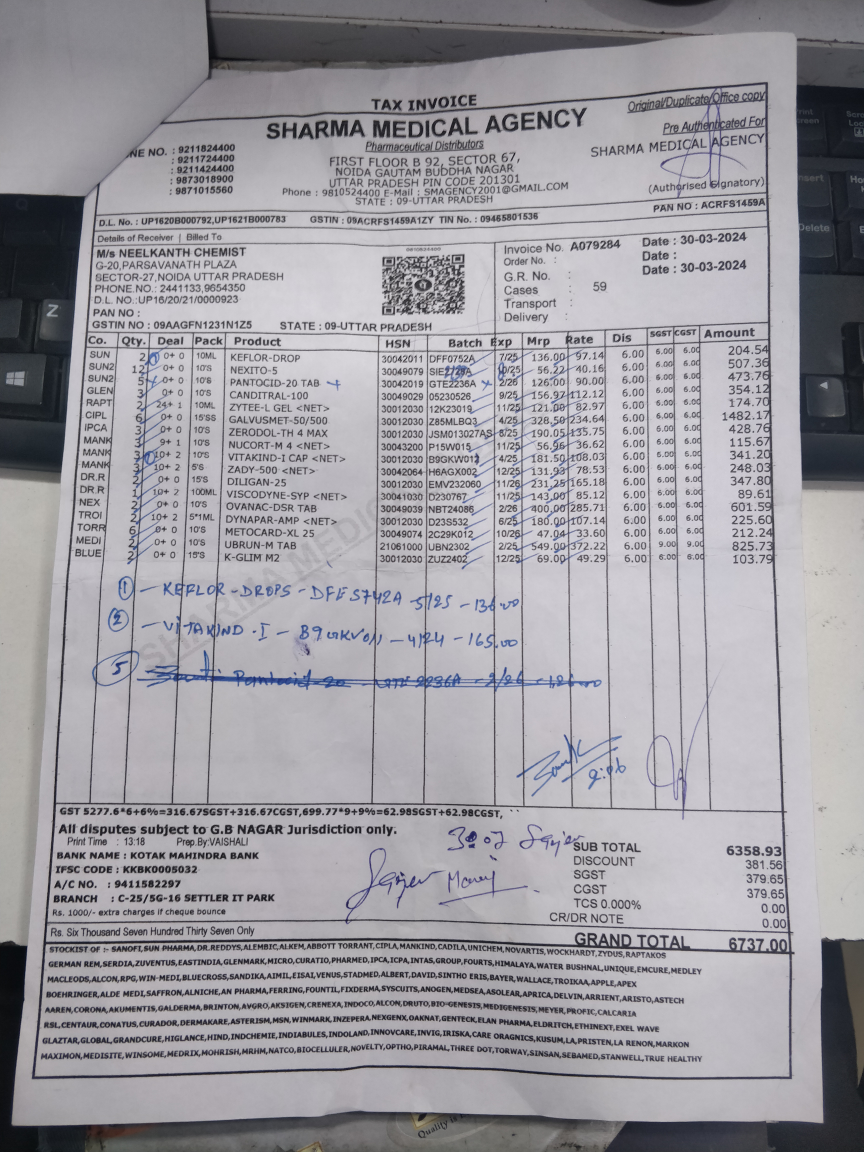 TAX INVOICE
Original/Duplicate/Office copy
SHARMA MEDICAL AGENCY
Pharmaceutical Distributors
FIRST FLOOR B 92, SECTOR 67,
NOIDA GAUTAM BUDDHA NAGAR
UTTAR PRADESH PIN CODE 201301
Phone : 9810524400 E-Mail : SMAGENCY2001@GMAIL.COM
STATE : 09-UTTAR PRADESH
NE NO. : 9211824400
: 9211724400
: 9211424400
: 9873018900
: 9871015560
Pre Authenticated For
SHARMA MEDICAL AGENCY
(Authorised Signatory)
PAN NO : ACRFS1459A
D.L. No. : UP1620B000792,UP1621B000783 GSTIN : 09ACRFS1459A1ZY TIN No. : 09465801536
Details of Receiver | Billed To
M/s NEELKANTH CHEMIST
G-20,PARSAVANATH PLAZA
SECTOR-27,NOIDA UTTAR PRADESH
PHONE.NO.: 2441133,9654350
D.L. NO.:UP16/20/21/0000923
PAN NO :
GSTIN NO : 09AAGFN1231N1Z5 STATE : 09-UTTAR PRADESH
Invoice No. A079284 Date : 30-03-2024
Order No. : Date :
G.R. No. : Date : 30-03-2024
Cases : 59
Transport :
Delivery :
Co. Qty. Deal Pack Product HSN Batch Exp Mrp Rate Dis SGST CGST Amount
SUN 2 0+ 0 10ML KEFLOR-DROP 30042011 DFF0752A 7/25 136.00 97.14 6.00 6.00 6.00 204.54
SUN2 12 0+ 0 10'S NEXITO-5 30049079 56.22 40.16 6.00 6.00 6.00 507.36
SUN2 5 0+ 0 10'S PANTOCID-20 TAB 30042019 GTE2236A 2/26 126.00 90.00 6.00 6.00 6.00 473.76
GLEN 3 0+ 0 10'S CANDITRAL-100 30049029 05230526 9/25 156.97 112.12 6.00 6.00 6.00 354.12
RAPT 2 24+ 1 10ML ZYTEE-L GEL <NET> 30012030 12K23019 11/25 121.00 82.97 6.00 6.00 6.00 174.70
CIPL 6 0+ 0 15'SS GALVUSMET-50/500 30012030 Z85MLBQ3 4/25 328.50 234.64 6.00 6.00 6.00 1482.17
IPCA 3 0+ 0 10'S ZERODOL-TH 4 MAX 30012030 JSM013027AS 8/25 190.05 135.75 6.00 6.00 6.00 428.76
MANK 3 9+ 1 10'S NUCORT-M 4 <NET> 30043200 P15W015 11/25 56.96 36.62 6.00 6.00 6.00 115.67
MANK 3 10+ 2 10'S VITAKIND-I CAP <NET> 30012030 B9GKW012 4/25 181.50 108.03 6.00 6.00 6.00 341.20
MANK 3 10+ 2 5'S ZADY-500 <NET> 30042064 H6AGX002 12/25 131.93 78.53 6.00 6.00 6.00 248.03
DR.R 2 0+ 0 15'S DILIGAN-25 30012030 EMV232060 11/26 231.25 165.18 6.00 6.00 6.00 347.80
DR.R 1 10+ 2 100ML VISCODYNE-SYP <NET> 30041030 D230767 11/25 143.00 85.12 6.00 6.00 6.00 89.61
NEX 2 0+ 0 10'S OVANAC-DSR TAB 30049039 NBT24086 2/26 400.00 285.71 6.00 6.00 6.00 601.59
TROI 2 10+ 2 5*1ML DYNAPAR-AMP <NET> 30012030 D23S532 6/25 180.00 107.14 6.00 6.00 6.00 225.60
TORR 6 0+ 0 10'S METOCARD-XL 25 30049074 2C29K012 10/26 47.04 33.60 6.00 6.00 6.00 212.24
MEDI 2 0+ 0 10'S UBRUN-M TAB 21061000 UBN2302 2/25 549.00 372.22 6.00 9.00 9.00 825.73
BLUE 2 0+ 0 15'S K-GLIM M2 30012030 ZUZ2402 12/25 69.00 49.29 6.00 6.00 6.00 103.79
① - KEFLOR-DROPS - DFES742A 5/25 - 136.00
② - VITAKIND-I - B9GKV011 - 4/24 - 165.00
5 Pantocid-20 - GTE 2236A - 2/26 - 126.00
GST 5277.6*6+6%=316.67SGST+316.67CGST,699.77*9+9%=62.98SGST+62.98CGST,
All disputes subject to G.B NAGAR Jurisdiction only.
Print Time : 13:18 Prep.By:VAISHALI
BANK NAME : KOTAK MAHINDRA BANK
IFSC CODE : KKBK0005032
A/C NO. : 9411582297
BRANCH : C-25/5G-16 SETTLER IT PARK
Rs. 1000/- extra charges if cheque bounce
SUB TOTAL 6358.93
DISCOUNT 381.56
SGST 379.65
CGST 379.65
TCS 0.000% 0.00
CR/DR NOTE 0.00
Rs. Six Thousand Seven Hundred Thirty Seven Only
GRAND TOTAL 6737.00
STOCKIST OF :- SANOFI,SUN PHARMA,DR.REDDYS,ALEMBIC,ALKEM,ABBOTT TORRANT,CIPLA,MANKIND,CADILA,UNICHEM,NOVARTIS,WOCKHARDT,ZYDUS,RAPTAKOS
GERMAN REM,SERDIA,ZUVENTUS,EASTINDIA,GLENMARK,MICRO,CURATIO,PHARMED,IPCA,INTAS,GROUP,FOURTS,HIMALAYA,WATER BUSHNAL,UNIQUE,EMCURE,MEDLEY
MACLEODS,ALCON,RPG,WIN-MEDI,BLUECROSS,SANDIKA,AIMIL,EISAI,VENUS,STADMED,ALBERT,DAVID,SINTHO ERIS,BAYER,WALLACE,TROIKAA,APPLE,APEX
BOEHRINGER,ALDE MEDI,SAFFRON,ALNICHE,AN PHARMA,FERRING,FOUNTIL,FIXDERMA,SYSCUITS,ANOGEN,MEDSEA,ASOLEAR,APRICA,DELVIN,ARRIENT,ARISTO,ASTECH
AAREN,CORONA,AKUMENTIS,GALDERMA,BRINTON,AVGRO,AKSIGEN,CRENEXA,INDOCO,ALCON,DRUTO,BIO-GENESIS,MEDIGENESIS,MEYER,PROFIC,CALCARIA
RSL,CENTAUR,CONATUS,CURADOR,DERMAKARE,ASTERISM,MSN,WINMARK,INZEPERA,NEXGENX,OAKNAT,GENTECK,ELAN PHARMA,ELDRITCH,ETHINEXT,EXEL WAVE
GLAZTAR,GLOBAL,GRANDCURE,HIGLANCE,HIND,INDCHEMIE,INDIABULES,INDOLAND,INNOVCARE,INVIG,IRISKA,CARE ORAGNICS,KUSUM,LA PRISTEN,LA RENON,MARKON
MAXIMON,MEDISITE,WINSOME,MEDRIX,MOHRISH,MRHM,NATCO,BIOCELLULER,NOVELTY,OPTHO,PIRAMAL,THREE DOT,TORWAY,SINSAN,SEBAMED,STANWELL,TRUE HEALTHY